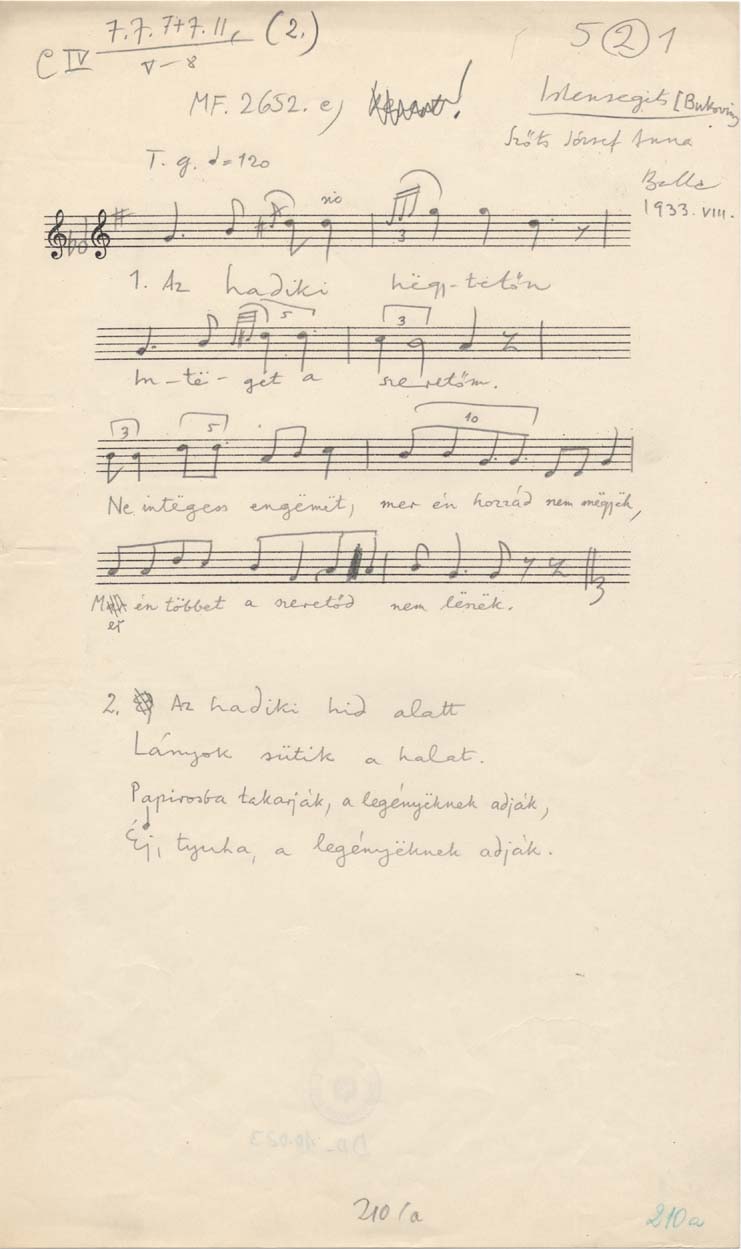 7. 7. 7+7. 11, (2.)
C IV V – 8
5 (2) 1
MF. 2652. e)
Istensegits [Bukovina
Szőts József Anna
T. g. = 120
Balla
1933. VIII.
3
1. Az hadiki hëgy-tetőn
5 3
In-të-get a szeretőm.
3 5 10
Ne intëgess engëmët, mer én hozzád nem mëgyëk,
Mer én többet a szeretőd nem lëszëk.
2. Az hadiki hid alatt
Lányok sütik a halat.
Papirosba takarják, a legényëknek adják,
Éj, tyuha, a legényëknek adják.
210/a
210a